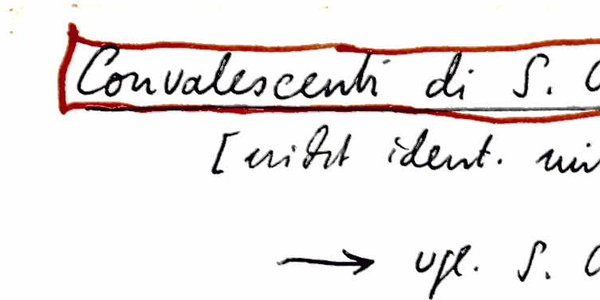 Convalescenti di S.
[nicht ident. mit
→ vgl. S.